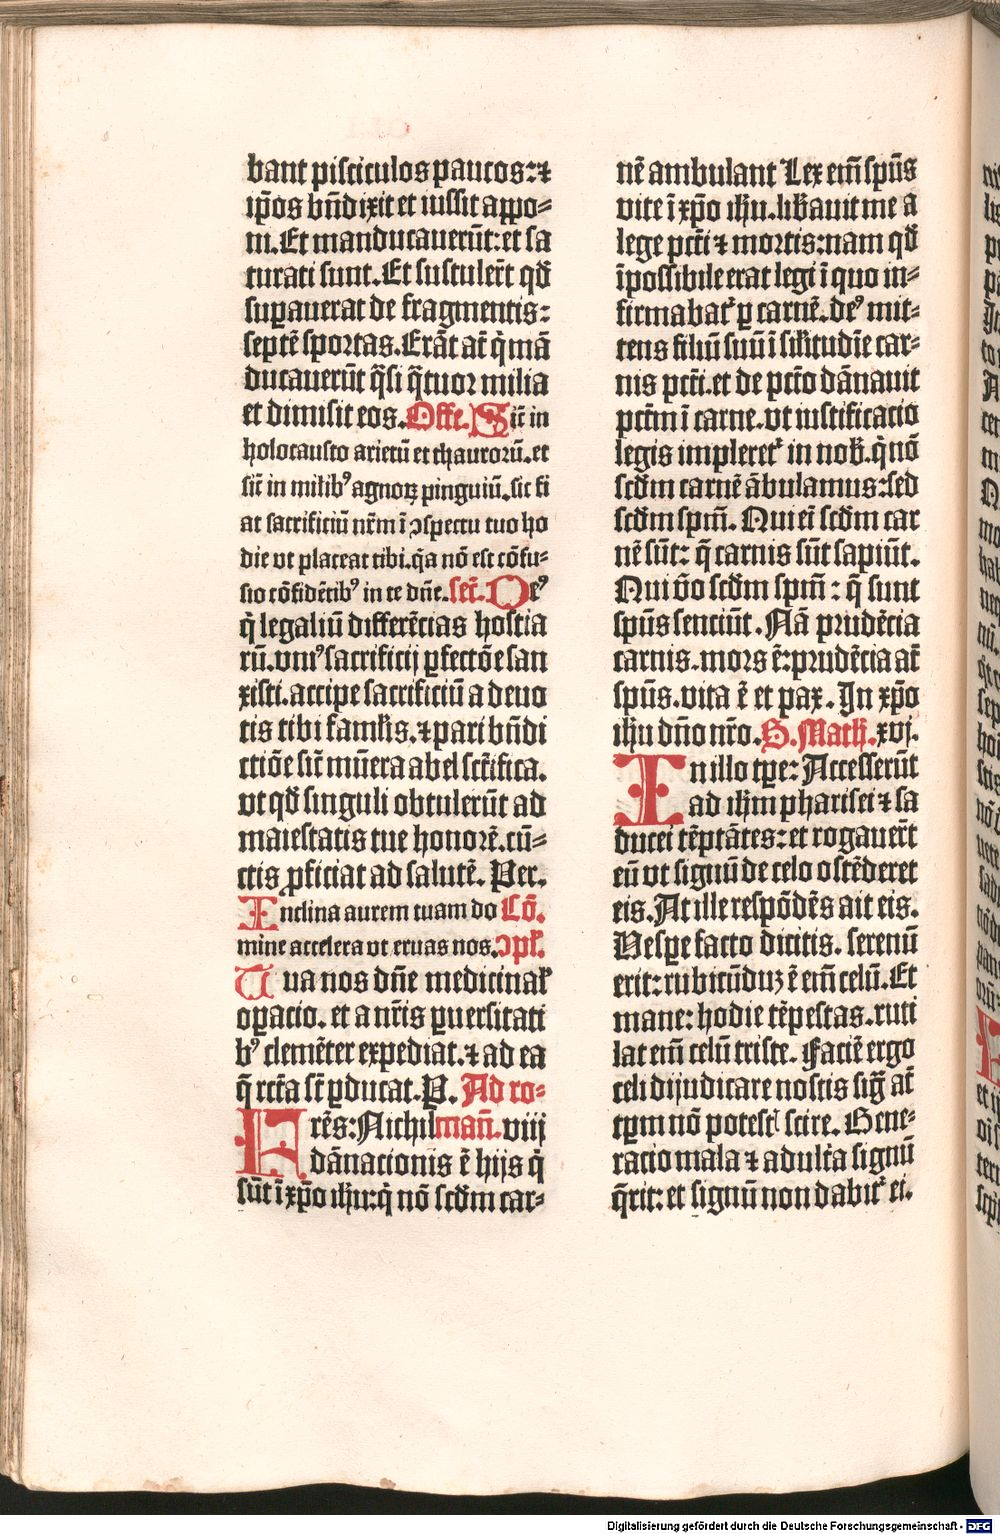 bant pisciculos paucos: ⁊
ip̄os bn̄dixit et iussit appo⸗
ni. Et manducauerūt: et sa
turati sunt. Et sustuler̄t qd̄
suꝑauerat de fragmentis:
septē sportas. Erāt at̄ q̇ mā
ducauerūt q̄si q̄tuor milia
et dimisit eos. Offe. Sic̄ in
holocausto arietū et thaurorū. et
sic̄ in milibꝰ agnoꝝ pinguiū. sic fi
at sacrificiū nr̄m ī ↄspectu tuo ho
die vt placeat tibi. q̄a nō est cōfu⸗
sio cōfidētibꝰ in te dn̄e. secr̄. Deꝰ
q̇ legaliū differēcias hostia
rū. vniꝰ sacrificij ꝑfectōe san
xisti. accipe sacrificiū a deuo
tis tibi famſis. ⁊ pari bn̄di
ctiōe sic̄ mūera abel sct̄ifica.
vt qd̄ singuli obtulerūt ad
maiestatis tue honorē. cū⸗
ctis ꝓficiat ad salutē. Per.
Inclina aurem tuam do Cō.
mine accelera vt eruas nos. ↄpl̄.
Tua nos dn̄e medicinaꝉ
oꝑacio. et a nr̄is ꝑuersitati
bꝰ clemēter expediat. ⁊ ad ea
q̄ rcta st̄ ꝑducat. P. Ad ro⸗
Frēs: Nichil man̄. viij
dānacionis ē hijs q̇
sūt ī xp̄o ih̄u: q̇ nō scd̄m car⸗
nē ambulant Lex em̄ spūs
vite ī xp̄o ih̄u. lib̄auit me a
lege pcti ⁊ mortis: nam qd̄
īpossibile erat legi ī quo in⸗
firmabat᷑ ꝑ carnē. deꝰ mit⸗
tens filiū suū ī sil̄itudīe car⸗
nis pcti. et de pcto dānauit
pctm̄ ī carne. vt iustificacio
legis impleret᷑ in nob̄. q̇ nō
scd̄m carnē ābulamus: sed
scd̄m spm̄. Nui ei scd̄m car
nē sūt: q̄ carnis sūt sapiūt.
Nui v̄o scd̄m spm̄: q̄ sunt
spūs senciūt. Nā prudēcia
carnis. mors ē: prudēcia at̄
spūs. vita ē et pax. In xp̄o
ih̄u dn̄o nr̄o. S. Math̄. xvj.
In illo tꝑe: Accesserūt
ad ih̄m pharisei ⁊ sa
ducei tēptātes: et rogauer̄t
eū vt signū de celo ostēderet
eis. At ille respōdēs ait eis.
Vespe facto dicitis. serenū
erit: rubicūduꝫ ē em̄ celū. Et
mane: hodie tēpestas. ruti
lat em̄ celū triste. Faciē ergo
celi dijudicare nostis sig̅ at̄
tꝑm nō potest scire. Gene⸗
racio mala ⁊ adult̄a signū
q̄rit: et signū non dabit᷑ ei.
Digitalisierung gefördert durch die Deutsche Forschungsgemeinschaft - DFG